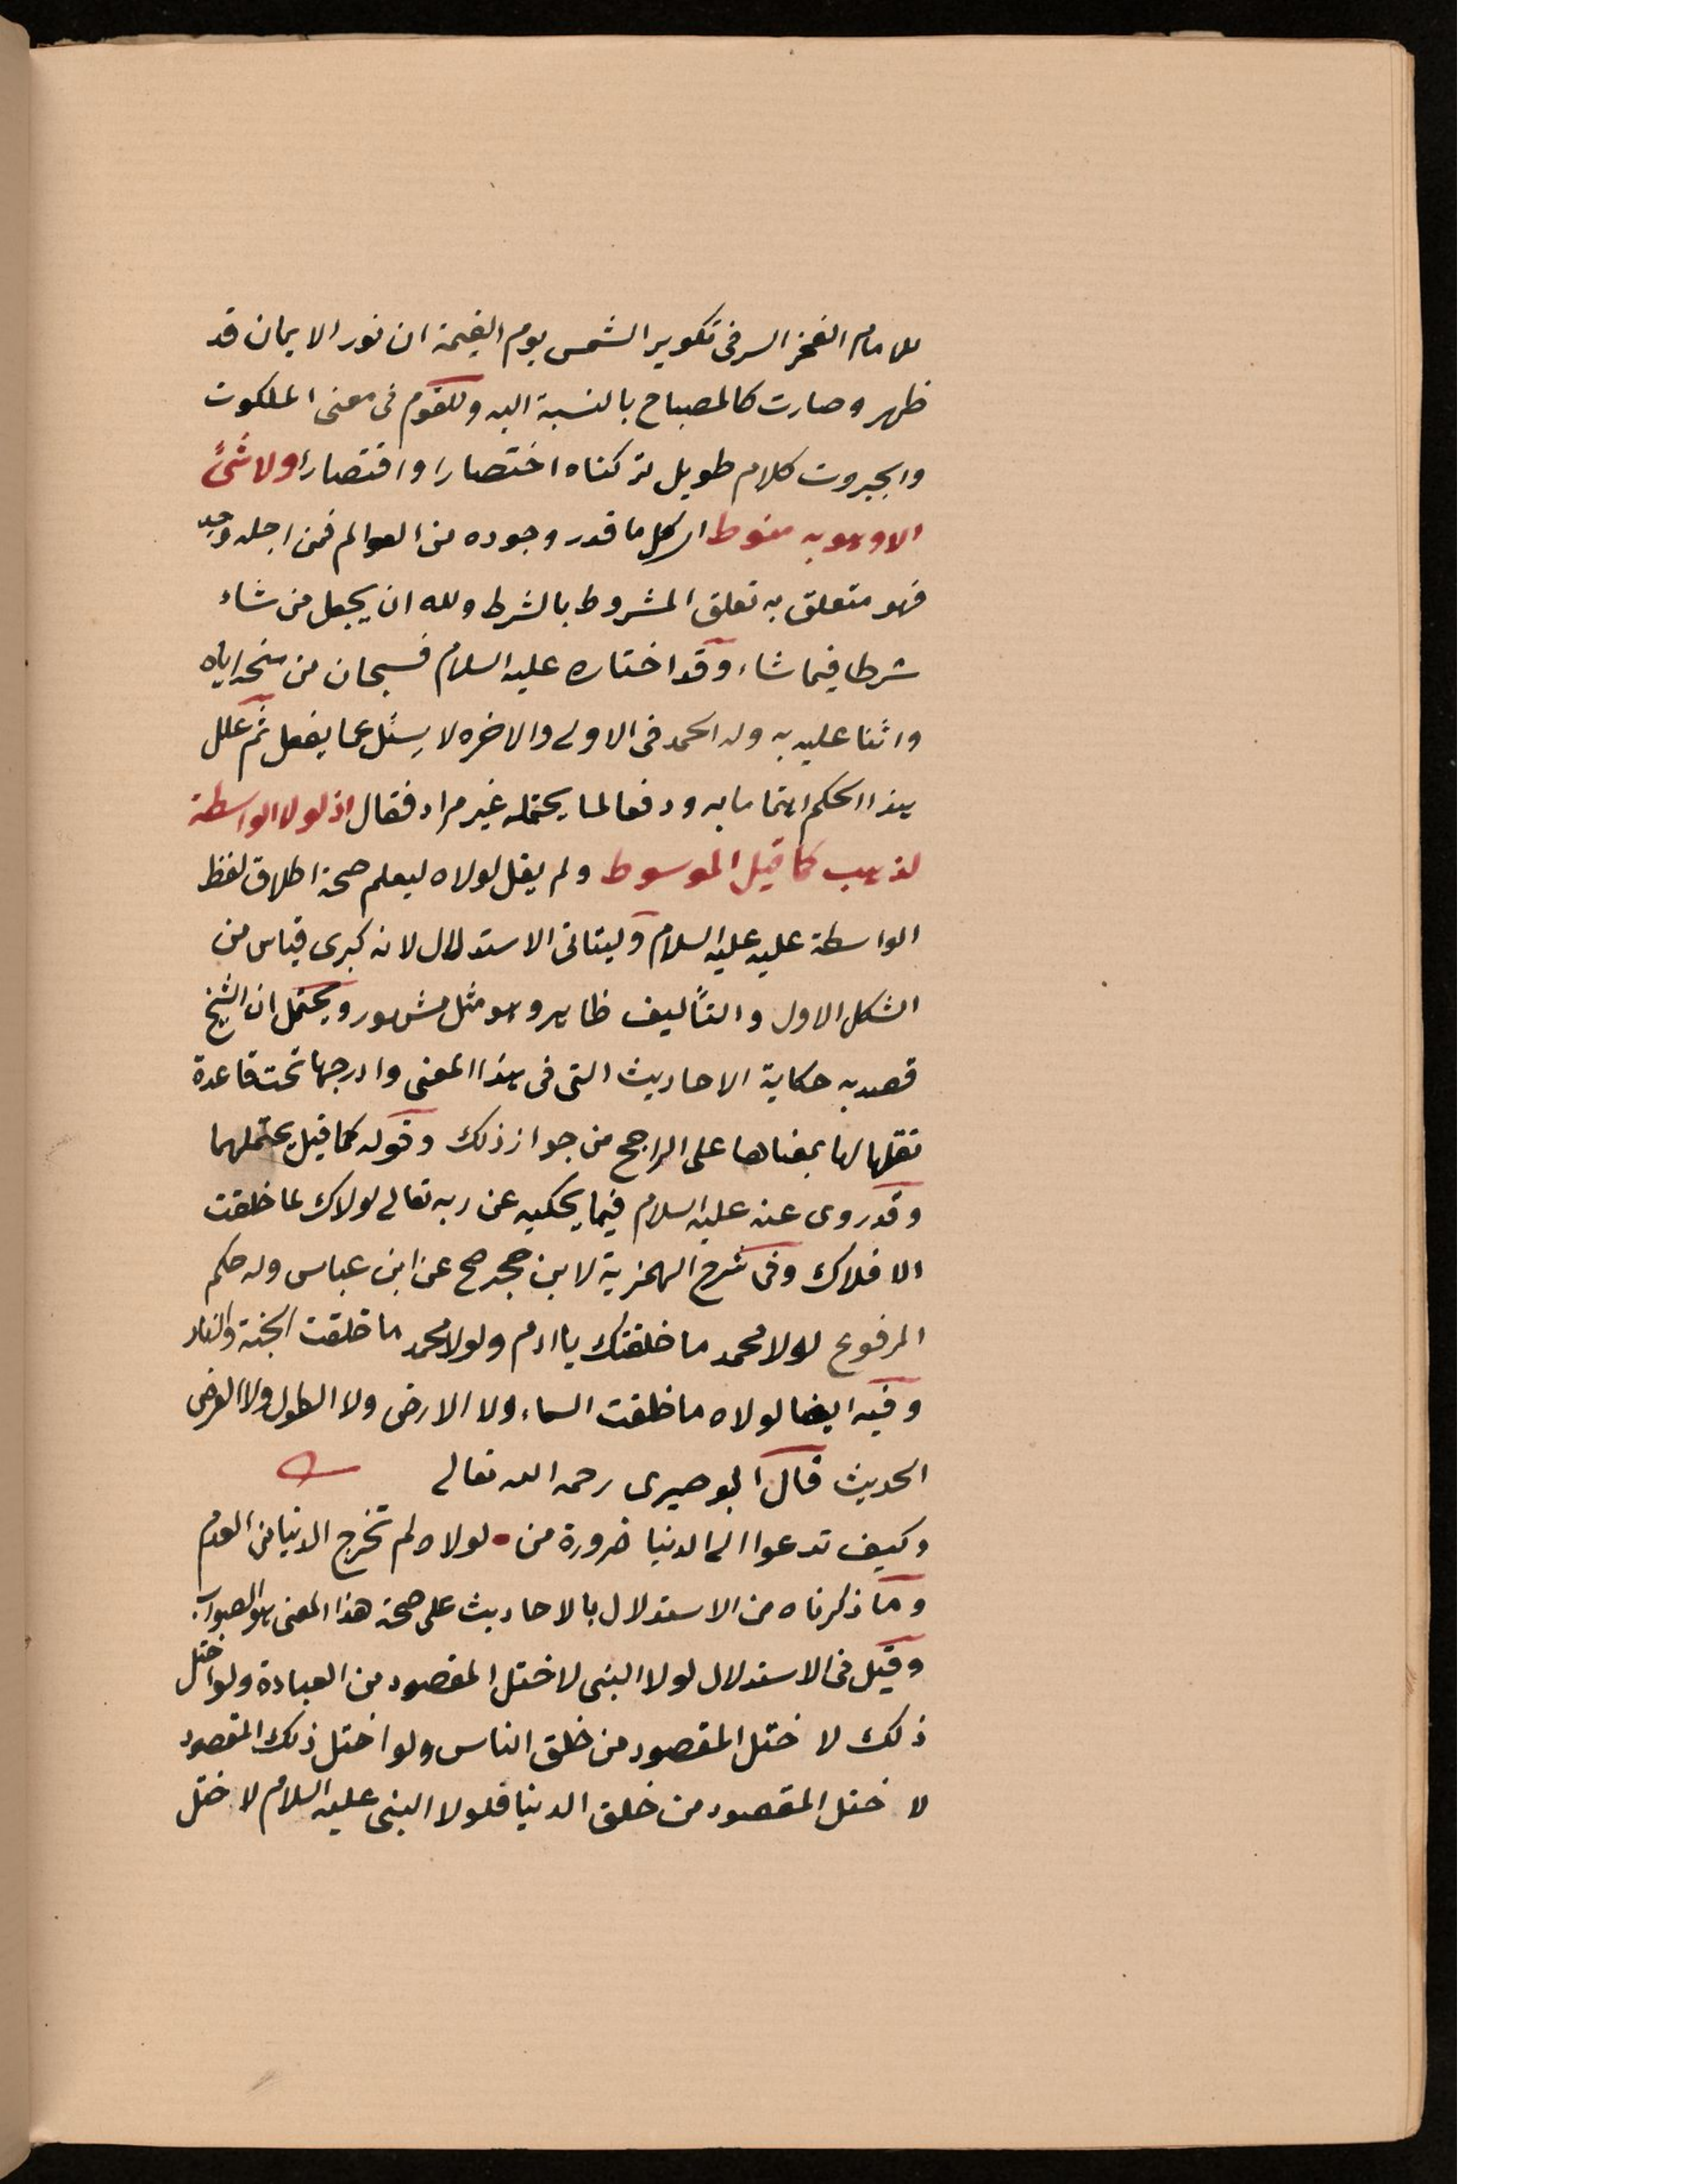 للامام الفخر السر فى تكوير الشمس يوم القيمة ان نور الايمان قد
ظهر وصارت كالمصباح بالنسبة اليه وللقوم فى معنى الملكوت
والجبروت كلام طويل تركناه اختصارا واقتصارا ولا شئ
الا وهو به منوط اى كل ما قدر وجوده من العوالم فمن اجله وجد
فهو متعلق به تعلق المشروط بالشرط ولله ان يجعل من شاء
شرطا فيما شاء وقد اختاره عليه السلام فسبحان من منحه اياه
واثنا عليه به وله الحمد فى الاولى والاخره لا يسئل عما يفعل ثم علل
هذا الحكم اهتماما به ودفعا لما يحتمله غير مراد فقال اذ لولا الواسطة
لذهب كما قيل الموسوط ولم يقل لولاه ليعلم صحة اطلاق لفظ
الواسطة عليه عليه السلام وليتاتى الاستدلال لانه كبرى قياس من
الشكل الاول والتأليف ظاهر وهو مثل مشهور ويحتمل ان الشيخ
قصد به حكاية الاحاديث التى فى هذا المعنى وادرجها تحت قاعدة
نقلها لها بمعناها على الراجح من جواز ذلك وقوله كما قيل يحتملهما
وقد روى عنه عليه السلام فيما يحكيه عن ربه تعالى لولاك لما خلقت
الافلاك وفى شرح الهمزية لابن حجر صح عن ابن عباس وله حكم
المرفوع لولا محمد ما خلقتك يا ادم ولولا محمد ما خلقت الجنة والنار
وفيه ايضا لولاه ما خلقت السماء ولا الارض ولا الطول ولا العرض
الحديث قال البوصيرى رحمه الله تعالى
وكيف تدعوا الى الدنيا ضرورة من لولاه لم تخرج الدنيا من العدم
وما ذكرناه من الاستدلال بالاحاديث على صحة هذا المعنى هو الصواب
وقيل فى الاستدلال لولا النبى لاختل المقصود من العبادة ولو اختل
ذلك لاختل المقصود من خلق الناس ولو اختل ذلك المقصود
لاختل المقصود من خلق الدنيا فلولا النبى عليه السلام لاختل